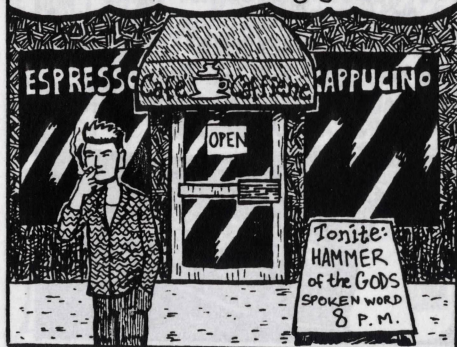 ESPRESSO
Café Caffiene
CAPPUCINO
OPEN
Tonite:
HAMMER
of the GODS
SPOKEN WORD
8 P.M.